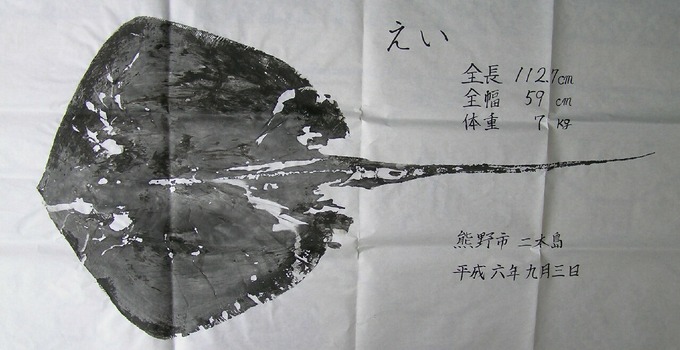 えい
全長 112.7cm
全幅 59 cm
体重 7 Kg
熊野市 二木島
平成六年九月三日